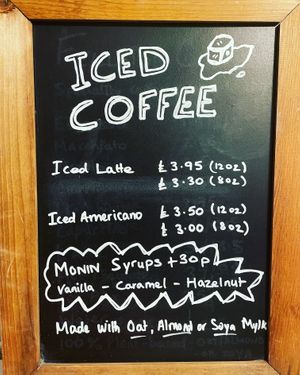 ICED
COFFEE
Iced Latte £3.95 (12oz)
£3.30 (8oz)
Iced Americano £3.50 (12oz)
£3.00 (8oz)
MONIN Syrups +30p
Vanilla - Caramel - Hazelnut
Made with Oat, Almond or Soya Mylk